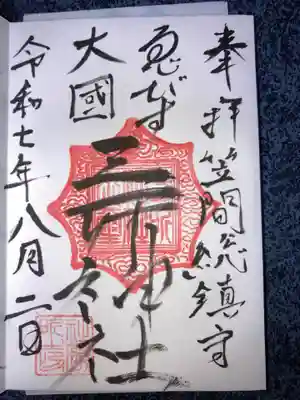 奉拝 笠間総鎮守
ゑびす
大國
三所神社
令和七年八月二日